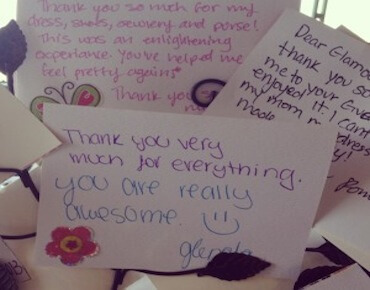 Thank you so much for my
dress, shoes, jewelry and purse!
This was an enlightening
experience. You've helped me
feel pretty again!
Thank you
Dear Glamou
thank you so
me to your Give
enjoyed it. I can't
my mom m
made
Thank you very
much for everything.
you are really
awesome.
glenola